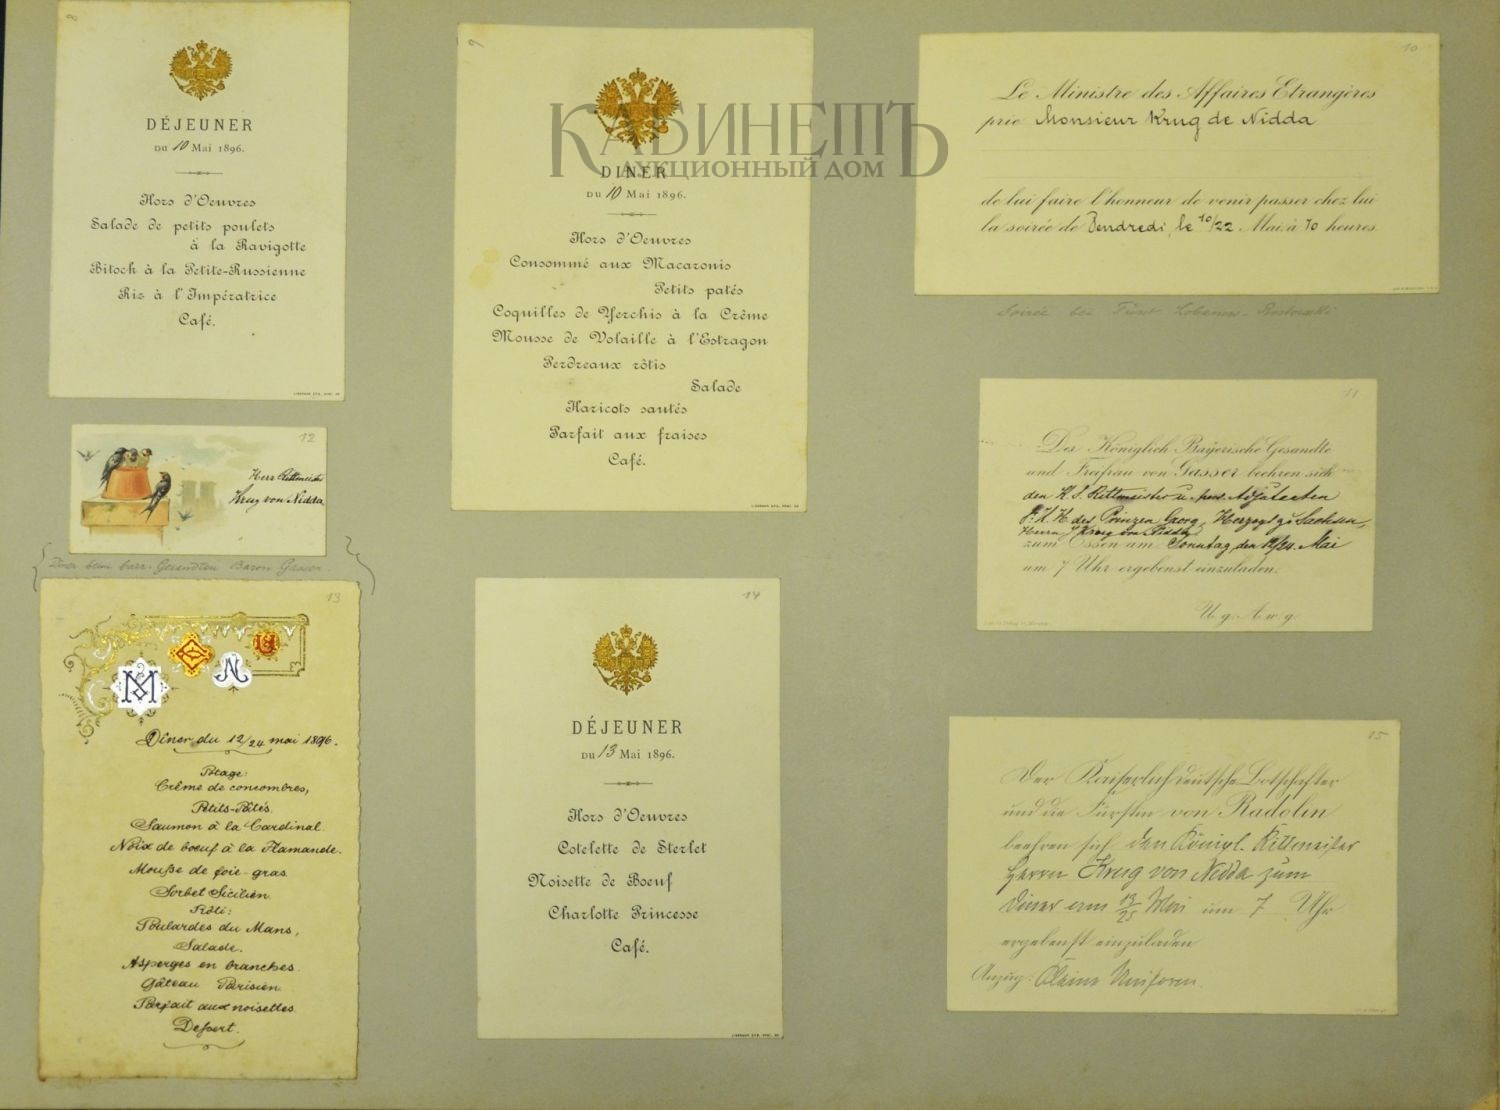 8
DÉJEUNER
DU 10 Mai 1896.
Hors d'Oeuvres
Salade de petits poulets
à la Ravigotte
Bitock à la Petite-Russienne
Riz à l'Impératrice
Café.
9
КАБИНЕТЪ
АУКЦИОННЫЙ ДОМ
DINER
DU 10 Mai 1896.
Hors d'Oeuvres
Consommé aux Macaronis
Petits patés
Coquilles de Yerchis à la Crême
Mousse de Volaille à l'Estragon
Perdreaux rôtis
Salade
Haricots sautés
Parfait aux fraises
Café.
10
Le Ministre des Affaires Etrangères
prie Monsieur Krug de Nidda
de lui faire l'honneur de venir passer chez lui
la soirée de Vendredi, le 10/22 Mai à 10 heures.
Soirée bei Fürst Lobanow-Rostowski
11
Der Königlich Bayerische Gesandte
und Freifrau von Gasser beehren sich
den K. S. Rittmeister u. pers. Adjutanten
S. K. H. des Prinzen Georg, Herzogs zu Sachsen,
Herrn Krug von Nidda
zum Essen am Sonntag, den 12/24. Mai
um 7 Uhr ergebenst einzuladen.
U. g. A. w. g.
12
Herr Rittmeister
Krug von Nidda
Diner beim bayr. Gesandten Baron Gasser
13
Dîner du 12/24 mai 1896.
Potage:
Crême de concombres,
Petits-Pâtés.
Saumon à la Cardinal.
Noix de boeuf à la Flamande.
Mousse de foie-gras.
Sorbet Sicilien.
Rôti:
Poulardes du Mans,
Salade.
Asperges en branches.
Gâteau Parisien.
Parfait aux noisettes.
Dessert.
14
DÉJEUNER
DU 13 Mai 1896.
Hors d'Oeuvres
Cotelette de Sterlet
Noisette de Boeuf
Charlotte Princesse
Café.
15
Der Kaiserlich Deutsche Botschafter
und die Fürstin von Radolin
beehren sich den Königl. Rittmeister
Herrn Krug von Nidda zum
Diner am 13/25 Mai um 7 Uhr
ergebenst einzuladen
Anzug: Kleine Uniform.